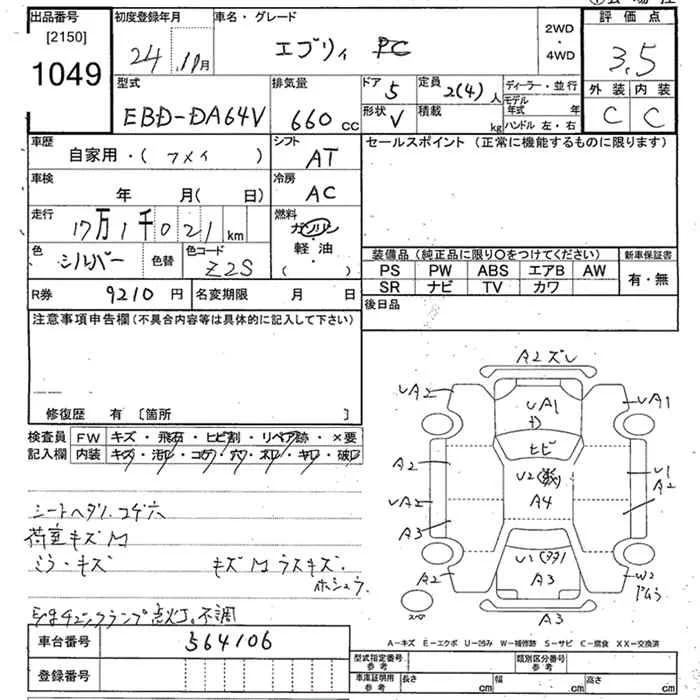 出品番号
[2150]
1049
初度登録年月
24 年 10月
車名・グレード
エブリィ PC
2WD
・
4WD
評価点
3.5
外装 内装
C C
型式
EBD-DA64V
排気量
660 cc
ドア 5
形状 V
定員 2(4) 人
積載 kg
ディーラー・並行
モデル年式 年
ハンドル 左・右
車歴
自家用・( )
シフト
AT
セールスポイント (正常に機能するものに限ります)
車検
年 月( 日)
冷房
AC
走行
17万1千021 km
燃料
ガソリン
・
軽油
( )
色
シルバー
色替
色コード
Z2S
装備品(純正品に限り○をつけてください)
新車保証書
PS PW ABS エアB AW
SR ナビ TV カワ
有・無
R券 9210 円
名変期限 月 日
後日品
注意事項申告欄(不具合内容等は具体的に記入して下さい)
修復歴 有 〔箇所 〕
検査員
記入欄
FW キズ・飛石・ヒビ割・リペア跡・×要
内装 キズ・汚レ・コゲ・穴・スレ・キレ・破レ
シートヘタリ、コゲ穴
荷室キズM
ミラ・キズ
キズM ラスキズ.
ホシュウ
チェックランプ点灯。不調
車台番号 564106
登録番号
A2ズレ
UA2
UA1
UA1
ヒビ
A2
U2
A4
U1
A2
UA2
A3
U1
A3
A2
W2
A3
スペ
A-キズ E-エクボ U-凹み W-補修跡 S-サビ C-腐食 XX-交換済
型式指定番号
参考
類別区分番号
参考
車庫証明用
参考
長さ cm 幅 cm 高さ cm